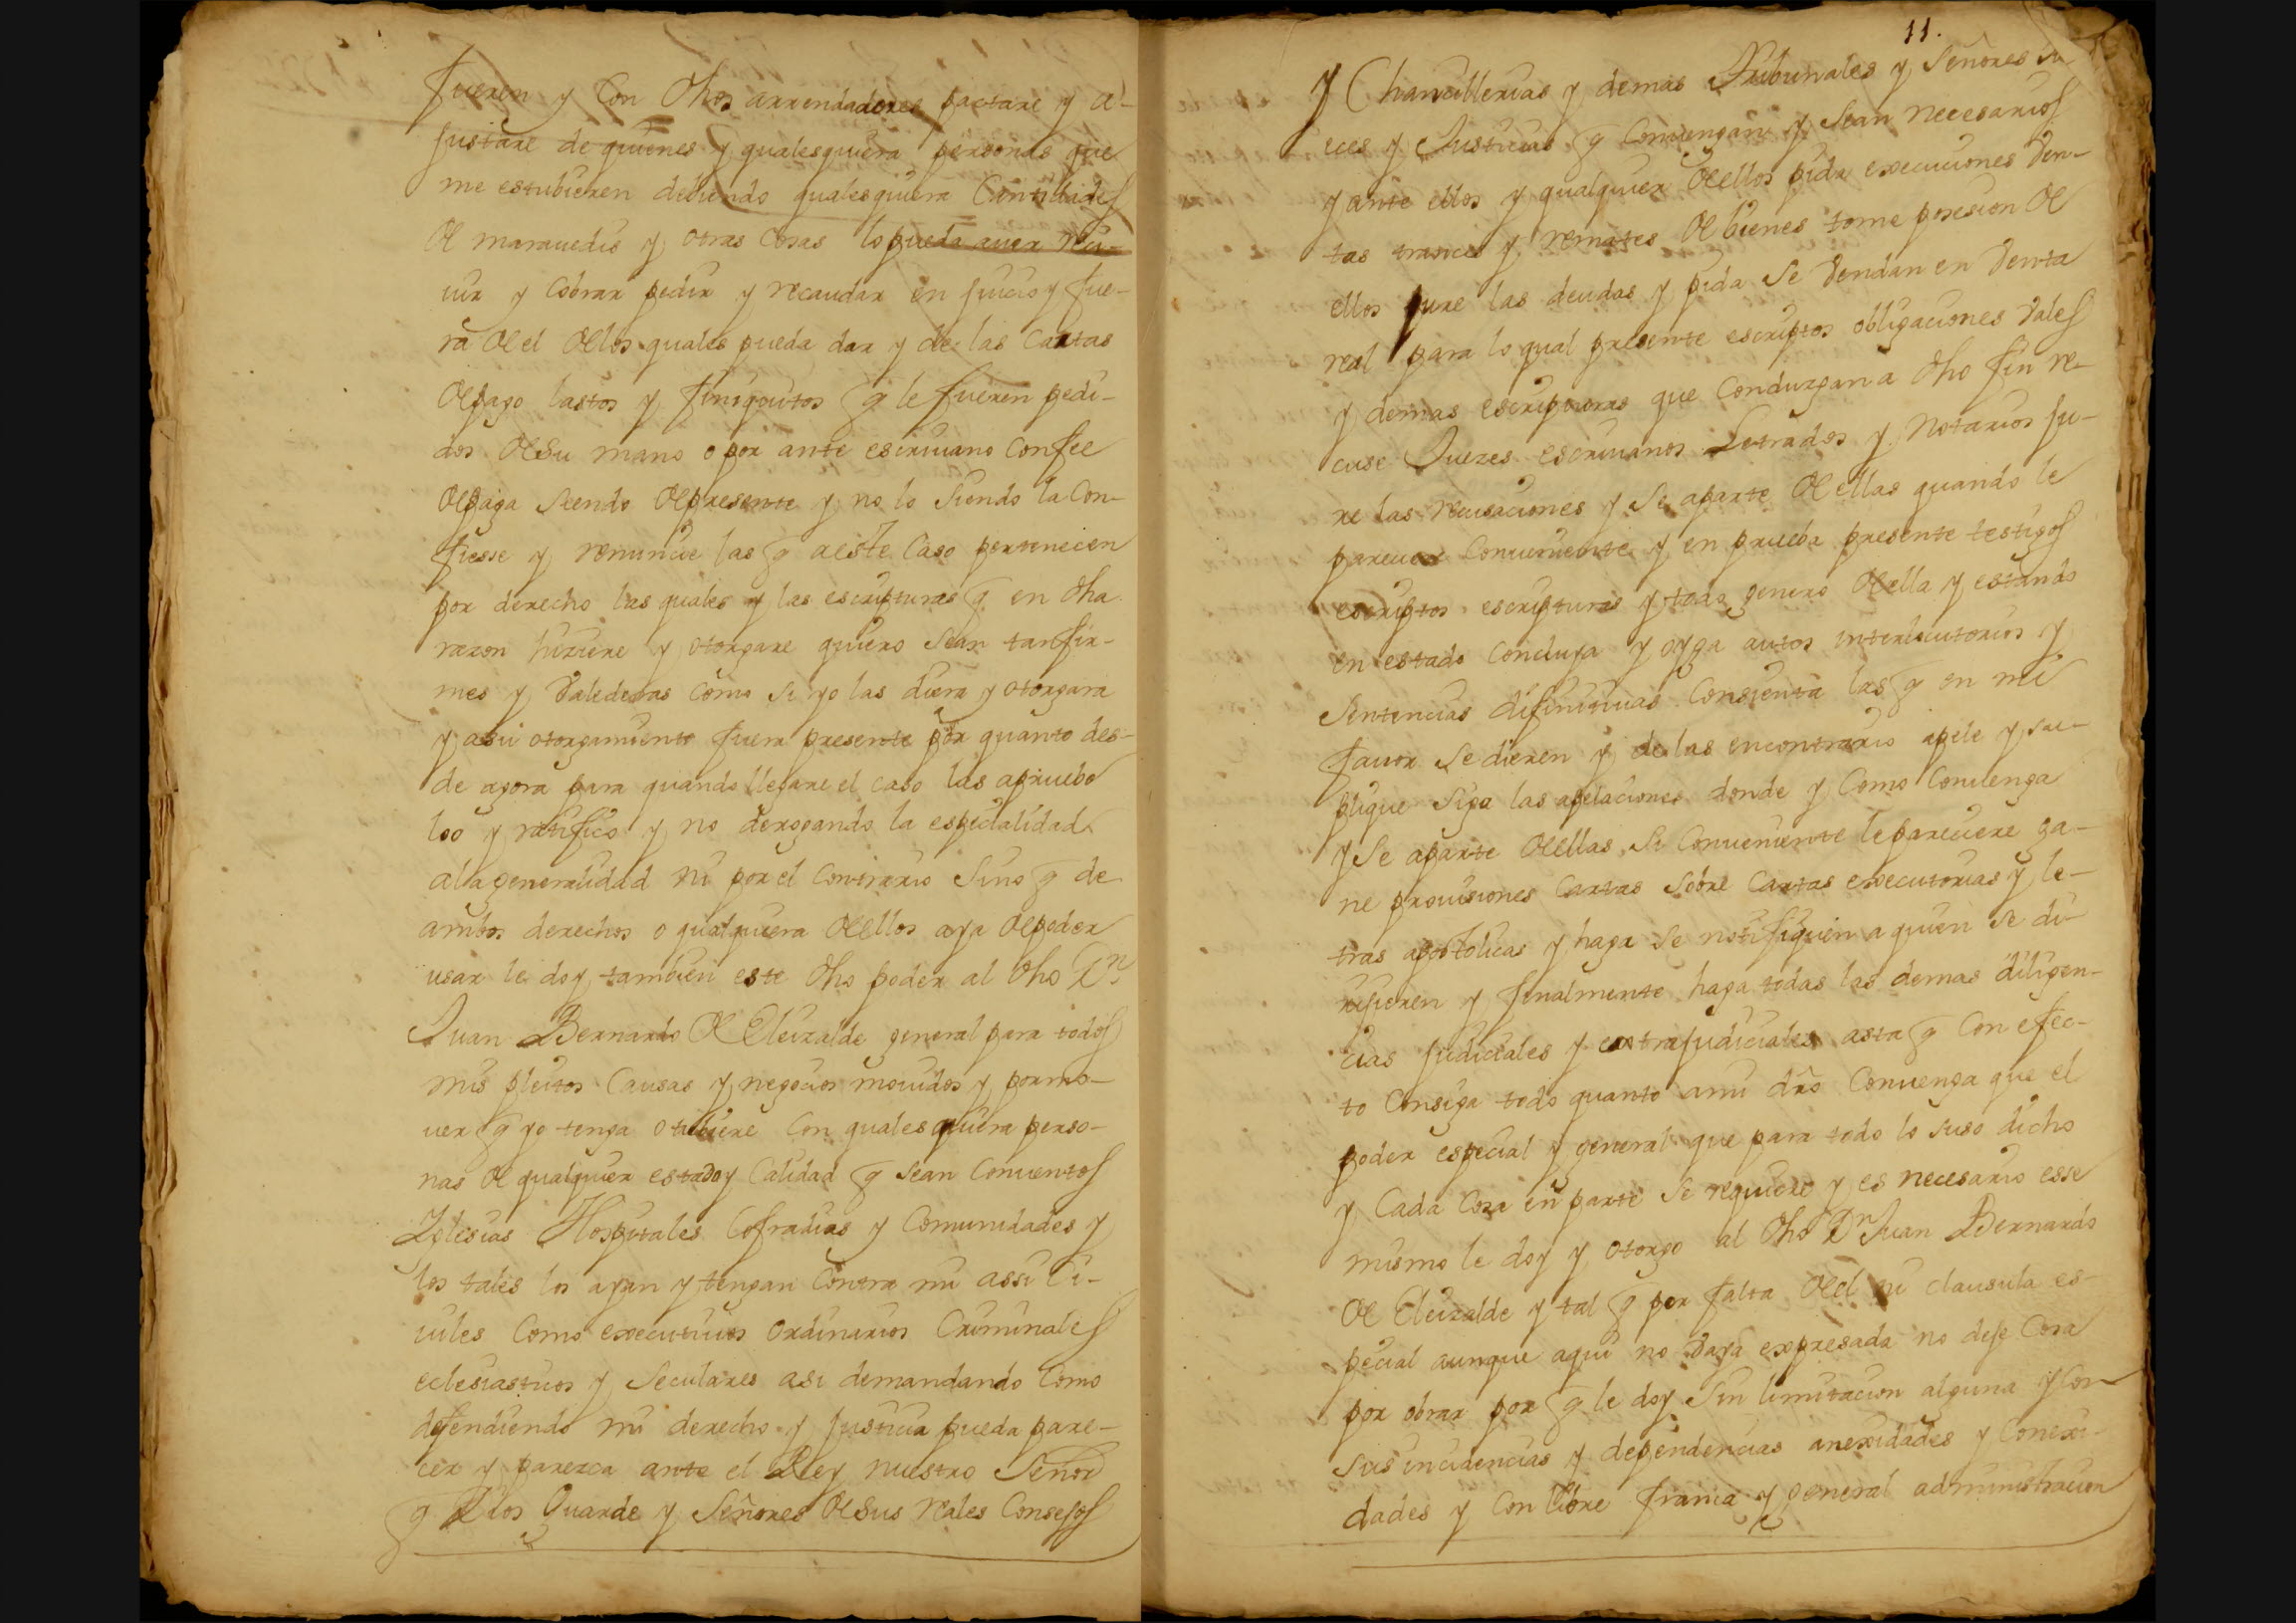 fueren y Con dhos arrendadores pactare y a-
justare de quienes y qualesquiera personas que
me estubieren debiendo qualesquiera Cantidades
de marauedis y otras Cosas lo pueda auer reci-
uir y Cobrar pedir y recaudar en juicio y fue-
ra de el de los quales pueda dar y de las Cartas
de pago lastos y finiquitos q le fueren pedi-
dos de su mano o por ante escriuano Con fee
de paga siendo de presente y no lo siendo la Con-
fiesse y renuncie las q a este Caso pertenecen
por derecho las quales y las escripturas q en dha
razon hiziere y otorgare quiero sean tan fir-
mes y Valederas Como si yo las diera y otorgara
y a su otorgamiento fuera presente por quanto des-
de agora para quando llegare el caso las apruebo
loo y ratifico y no derogando la especialidad
a la generalidad ni por el Contrario Sino q de
ambos derechos o qualquiera de ellos aya de poder
usar le doy tambien este dho poder al dho Dn
Juan Bernardo de Eleizalde general para todos
mis pleitos Causas y negocios mouidos y por mo-
uer q yo tenga o tubiere Con qualesquiera perso-
nas de qualquier estado y Calidad q sean Conuentos
Iglesias Hospitales Cofradias y Comunidades y
los tales los ayan y tengan Contra mi assi Ci-
uiles Como executiuos ordinarios Criminales
eclesiasticos y Seculares asi demandando Como
defendiendo mi derecho y justicia pueda pare-
cer y parezca ante el Rey nuestro Señor
q Dios Guarde y Señores de sus reales Consejos
11.
y Chancillerias y demas Tribunales y Señores Ju-
eces y Justicias q Conuengan y Sean necesarios
y ante ellos y qualquier de ellos pida execuciones Ven-
tas trances y remates de bienes tome posesion de
ellos jure las deudas y pida Se Vendan en Venta
real para lo qual presente escriptos obligaciones Vales
y demas escripturas que Conduzgan a dho fin re-
cuse Juezes escriuanos Letrados y Notarios ju-
re las recusaciones y Se aparte de ellas quando le
pareciere Conueniente y en prueba presente testigos
escriptos escripturas y todo genero de ella y estando
en estado Concluya y oyga autos interlocutorios y
Sentencias difinitiuas Consienta las q en mi
fauor Se dieren y de las en contrario apele y su-
plique Siga las apelaciones donde y Como Conuenga
y Se aparte de ellas Si Conueniente le pareciere ga-
ne prouisiones Cartas Sobre Cartas executorias y le-
tras apostolicas y haga Se notifiquen a quien Se di-
rigieren y finalmente haga todas las demas diligen-
cias judiciales y extrajudiciales asta q Con efec-
to Consiga todo quanto a mi dro Conuenga que el
poder especial y general que para todo lo suso dicho
y Cada Cosa en parte Se requiere y es necesario esse
mismo le doy y otorgo al dho Dn Juan Bernardo
de Eleizalde y tal q por falta de el ni clausula es-
pecial aunque aqui no Vaya expresada no deje Cosa
por obrar por q le doy Sin limitacion alguna y Con
Sus incidencias y dependencias anexidades y Conexi-
dades y Con libre franca y general administracion